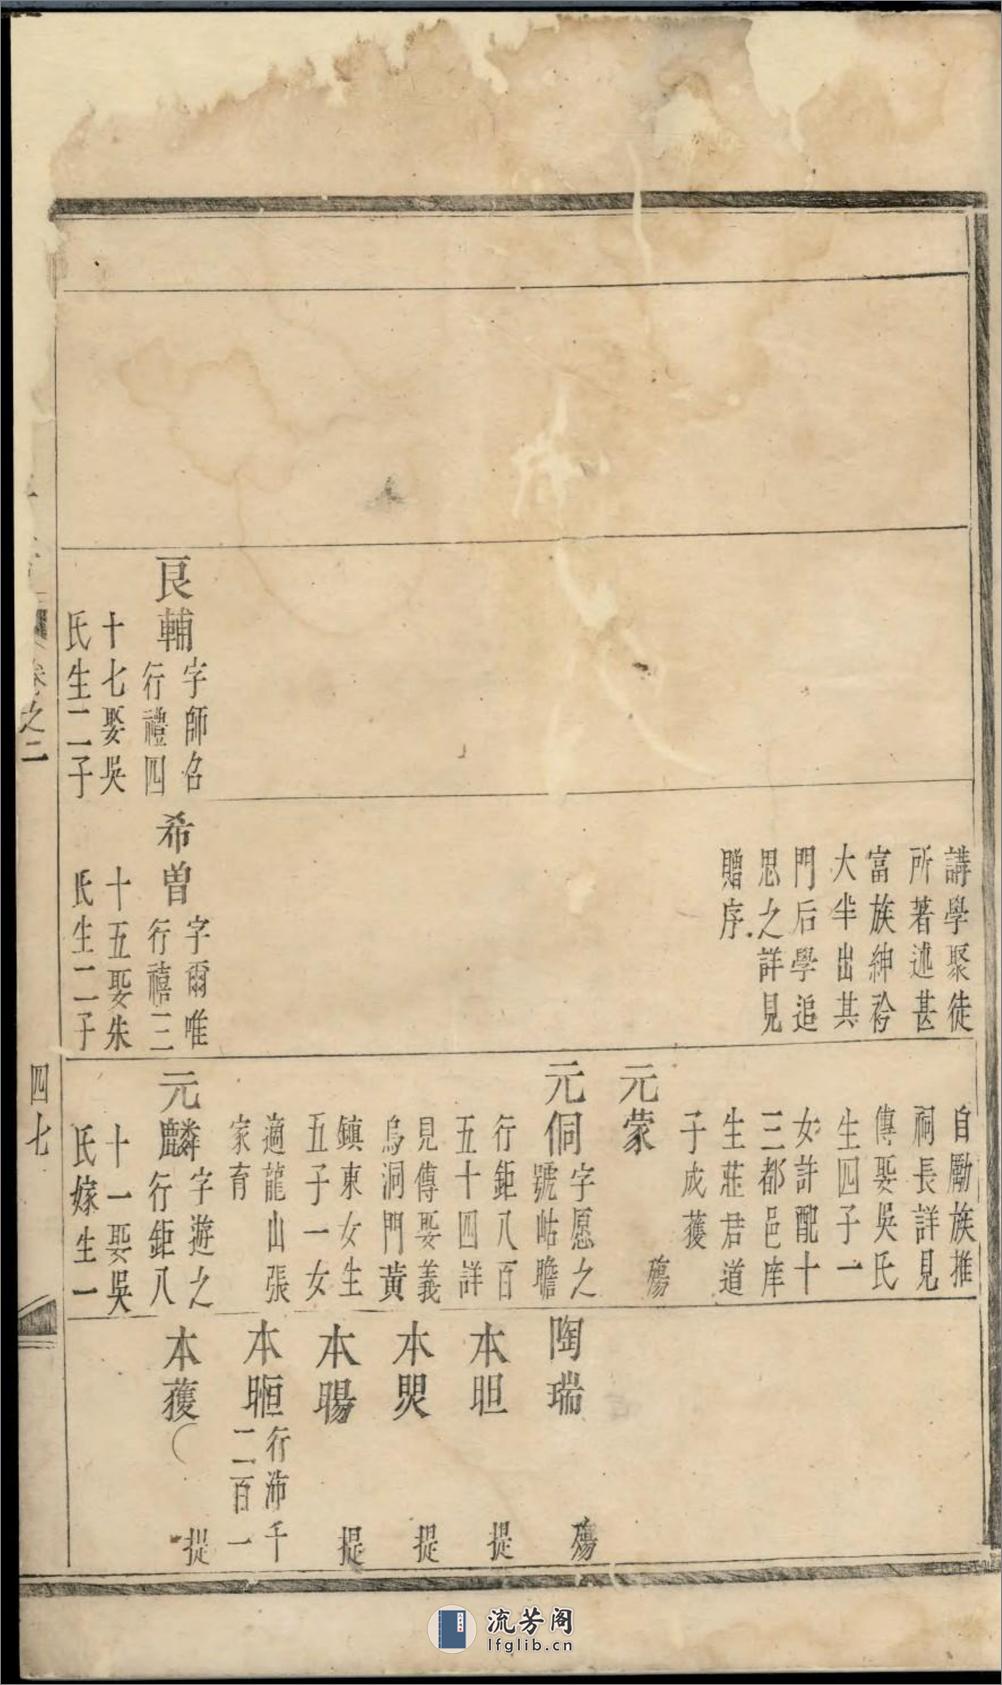 良輔
字師召
行禮四
十七娶吳
氏生二子
講學聚徒
所著述甚
富族紳衿
大半出其
門后學追
思之詳見
贈序
希曾
字爾唯
行禧三
十五娶朱
氏生二子
自勵族推
祠長詳見
傳娶吳氏
生四子一
女許配十
三都邑庠
生莊君道
子成獲
元蒙
殤
元侗
字愿之
號岵瞻
行鉅八百
五十四詳
見傳娶義
烏洞門黃
鎮東女生
五子一女
適龍山張
家育
元麟
字遊之
行鉅八
十一娶吳
氏嫁生一
陶瑞
殤
本昍
提
本煚
提
本暘
提
本暅
行沛千
二百一
本獲
提
卷之二
四七
流芳阁
lfglib.cn